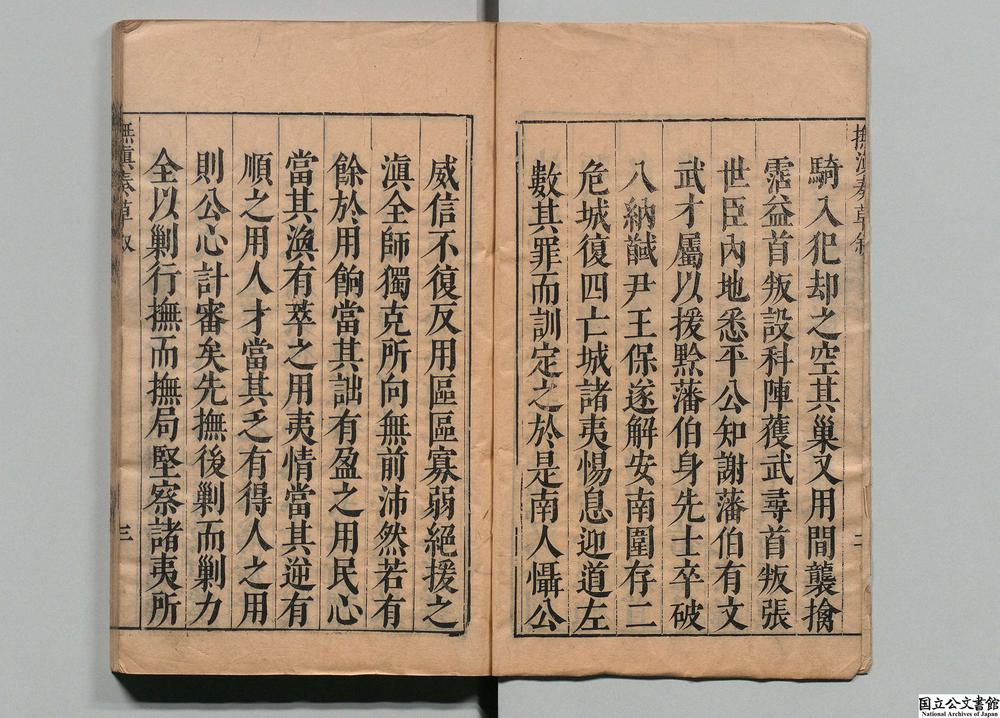 騎入犯却之空其巢又用間襲擒
霑益首叛設科陣蒦武尋首叛張
世臣內地悉平公知謝藩伯有文
武才屬以援黔藩伯身先士卒破
八納馘尹王保遂解安南圍存二
危城復四亡城諸夷惕息迎道左
數其罪而訓定之於是南人懾公
二
威信不復反用區區寡弱絕援之
滇全師獨克所向無前沛然若有
餘於用餉當其詘有盈之用民心
當其渙有萃之用夷情當其逆有
順之用人才當其乏有得人之用
則公心計審矣先撫後剿而剿力
全以剿行撫而撫局堅察諸夷所
撫滇奏草叙
三
国立公文書館
National Archives of Japan